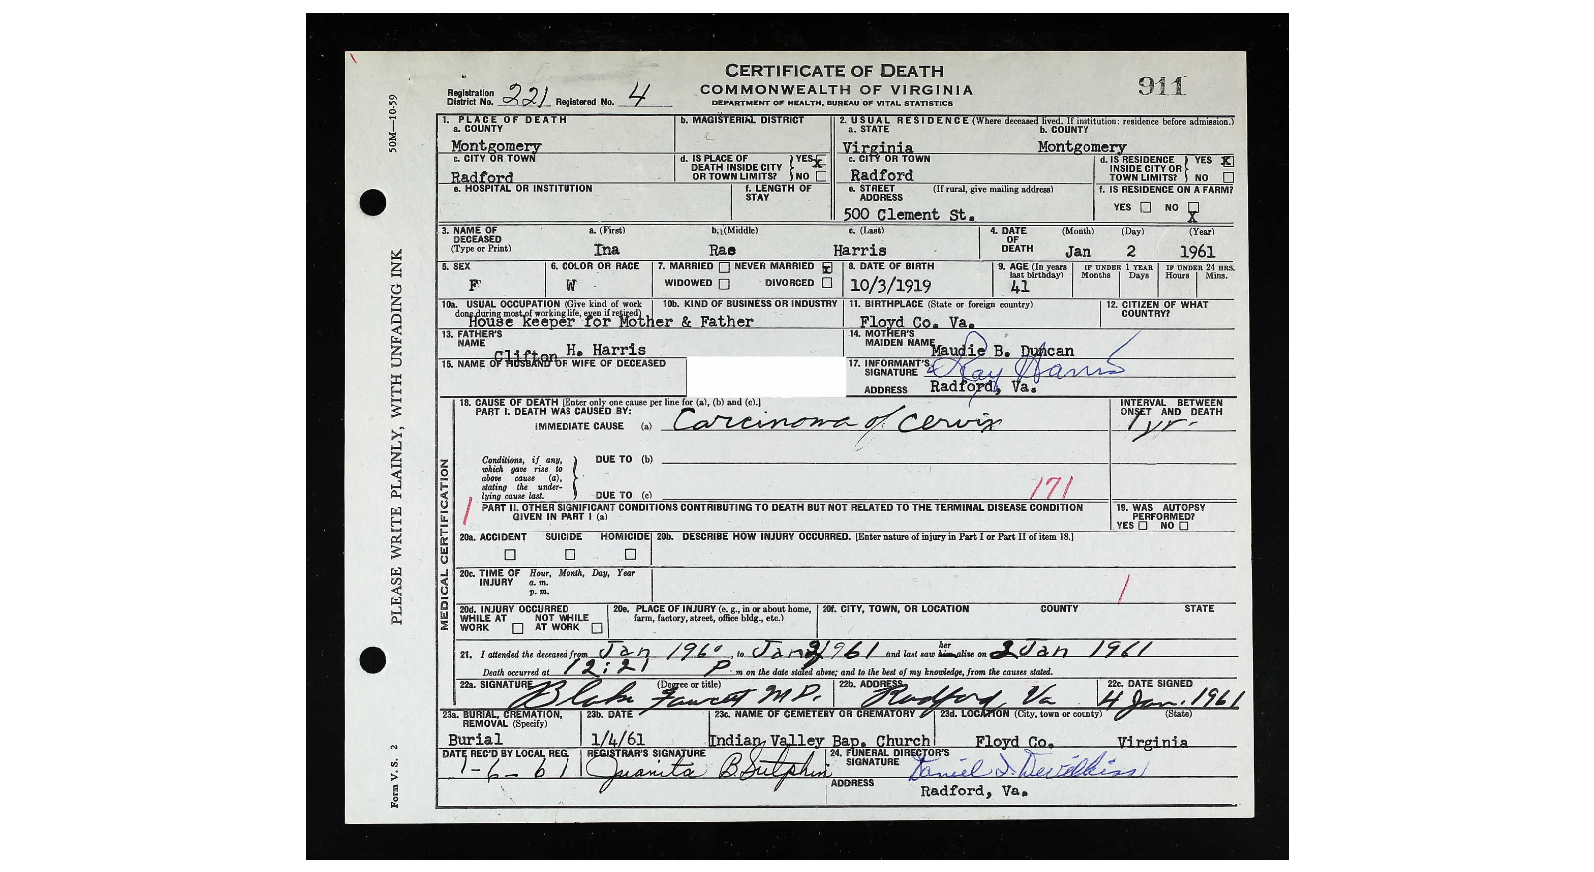 CERTIFICATE OF DEATH
COMMONWEALTH OF VIRGINIA
DEPARTMENT OF HEALTH, BUREAU OF VITAL STATISTICS
911
Registration District No. 221 Registered No. 4
50M—10-59
PLEASE WRITE PLAINLY, WITH UNFADING INK
Form V. S. 2
1. PLACE OF DEATH
a. COUNTY
Montgomery
b. MAGISTERIAL DISTRICT
c. CITY OR TOWN
Radford
d. IS PLACE OF DEATH INSIDE CITY OR TOWN LIMITS? YES X NO
e. HOSPITAL OR INSTITUTION
f. LENGTH OF STAY
2. USUAL RESIDENCE (Where deceased lived. If institution: residence before admission.)
a. STATE
Virginia
b. COUNTY
Montgomery
c. CITY OR TOWN
Radford
d. IS RESIDENCE INSIDE CITY OR TOWN LIMITS? YES X NO
e. STREET ADDRESS (If rural, give mailing address)
500 Clement St.
f. IS RESIDENCE ON A FARM?
YES NO X
3. NAME OF DECEASED (Type or Print)
a. (First) b. (Middle) c. (Last)
Ina Rae Harris
4. DATE OF DEATH (Month) (Day) (Year)
Jan 2 1961
5. SEX
F
6. COLOR OR RACE
W
7. MARRIED NEVER MARRIED X
WIDOWED DIVORCED
8. DATE OF BIRTH
10/3/1919
9. AGE (In years last birthday)
41
IF UNDER 1 YEAR Months Days
IF UNDER 24 HRS. Hours Mins.
10a. USUAL OCCUPATION (Give kind of work done during most of working life, even if retired)
House keeper for Mother & Father
10b. KIND OF BUSINESS OR INDUSTRY
11. BIRTHPLACE (State or foreign country)
Floyd Co. Va.
12. CITIZEN OF WHAT COUNTRY?
13. FATHER'S NAME
Clifton H. Harris
14. MOTHER'S MAIDEN NAME
Maudie B. Duncan
15. NAME OF HUSBAND OF WIFE OF DECEASED
17. INFORMANT'S SIGNATURE Ray Harris
ADDRESS Radford, Va.
MEDICAL CERTIFICATION
18. CAUSE OF DEATH [Enter only one cause per line for (a), (b) and (c).]
PART I. DEATH WAS CAUSED BY:
IMMEDIATE CAUSE (a) Carcinoma of Cervix
INTERVAL BETWEEN ONSET AND DEATH
1 yr.
Conditions, if any, which gave rise to above cause (a), stating the underlying cause last.
DUE TO (b)
DUE TO (c)
171
PART II. OTHER SIGNIFICANT CONDITIONS CONTRIBUTING TO DEATH BUT NOT RELATED TO THE TERMINAL DISEASE CONDITION GIVEN IN PART I (a)
19. WAS AUTOPSY PERFORMED?
YES NO
20a. ACCIDENT SUICIDE HOMICIDE
20b. DESCRIBE HOW INJURY OCCURRED. [Enter nature of injury in Part I or Part II of item 18.]
20c. TIME OF INJURY Hour, Month, Day, Year
a. m.
p. m.
20d. INJURY OCCURRED
WHILE AT WORK NOT WHILE AT WORK
20e. PLACE OF INJURY (e. g., in or about home, farm, factory, street, office bldg., etc.)
20f. CITY, TOWN, OR LOCATION COUNTY STATE
21. I attended the deceased from Jan 1960, to Jan 2 1961 and last saw her him alive on 2 Jan 1961
Death occurred at 12:21 P m on the date stated above; and to the best of my knowledge, from the causes stated.
22a. SIGNATURE (Degree or title)
Blake Fawcett MD.
22b. ADDRESS
Radford, Va
22c. DATE SIGNED
4 Jan. 1961
23a. BURIAL, CREMATION, REMOVAL (Specify)
Burial
23b. DATE
1/4/61
23c. NAME OF CEMETERY OR CREMATORY
Indian Valley Bap. Church
23d. LOCATION (City, town or county) (State)
Floyd Co. Virginia
DATE REC'D BY LOCAL REG.
1-6-61
REGISTRAR'S SIGNATURE
Juanita B. Sutphin
24. FUNERAL DIRECTOR'S SIGNATURE
Daniel
ADDRESS
Radford, Va.